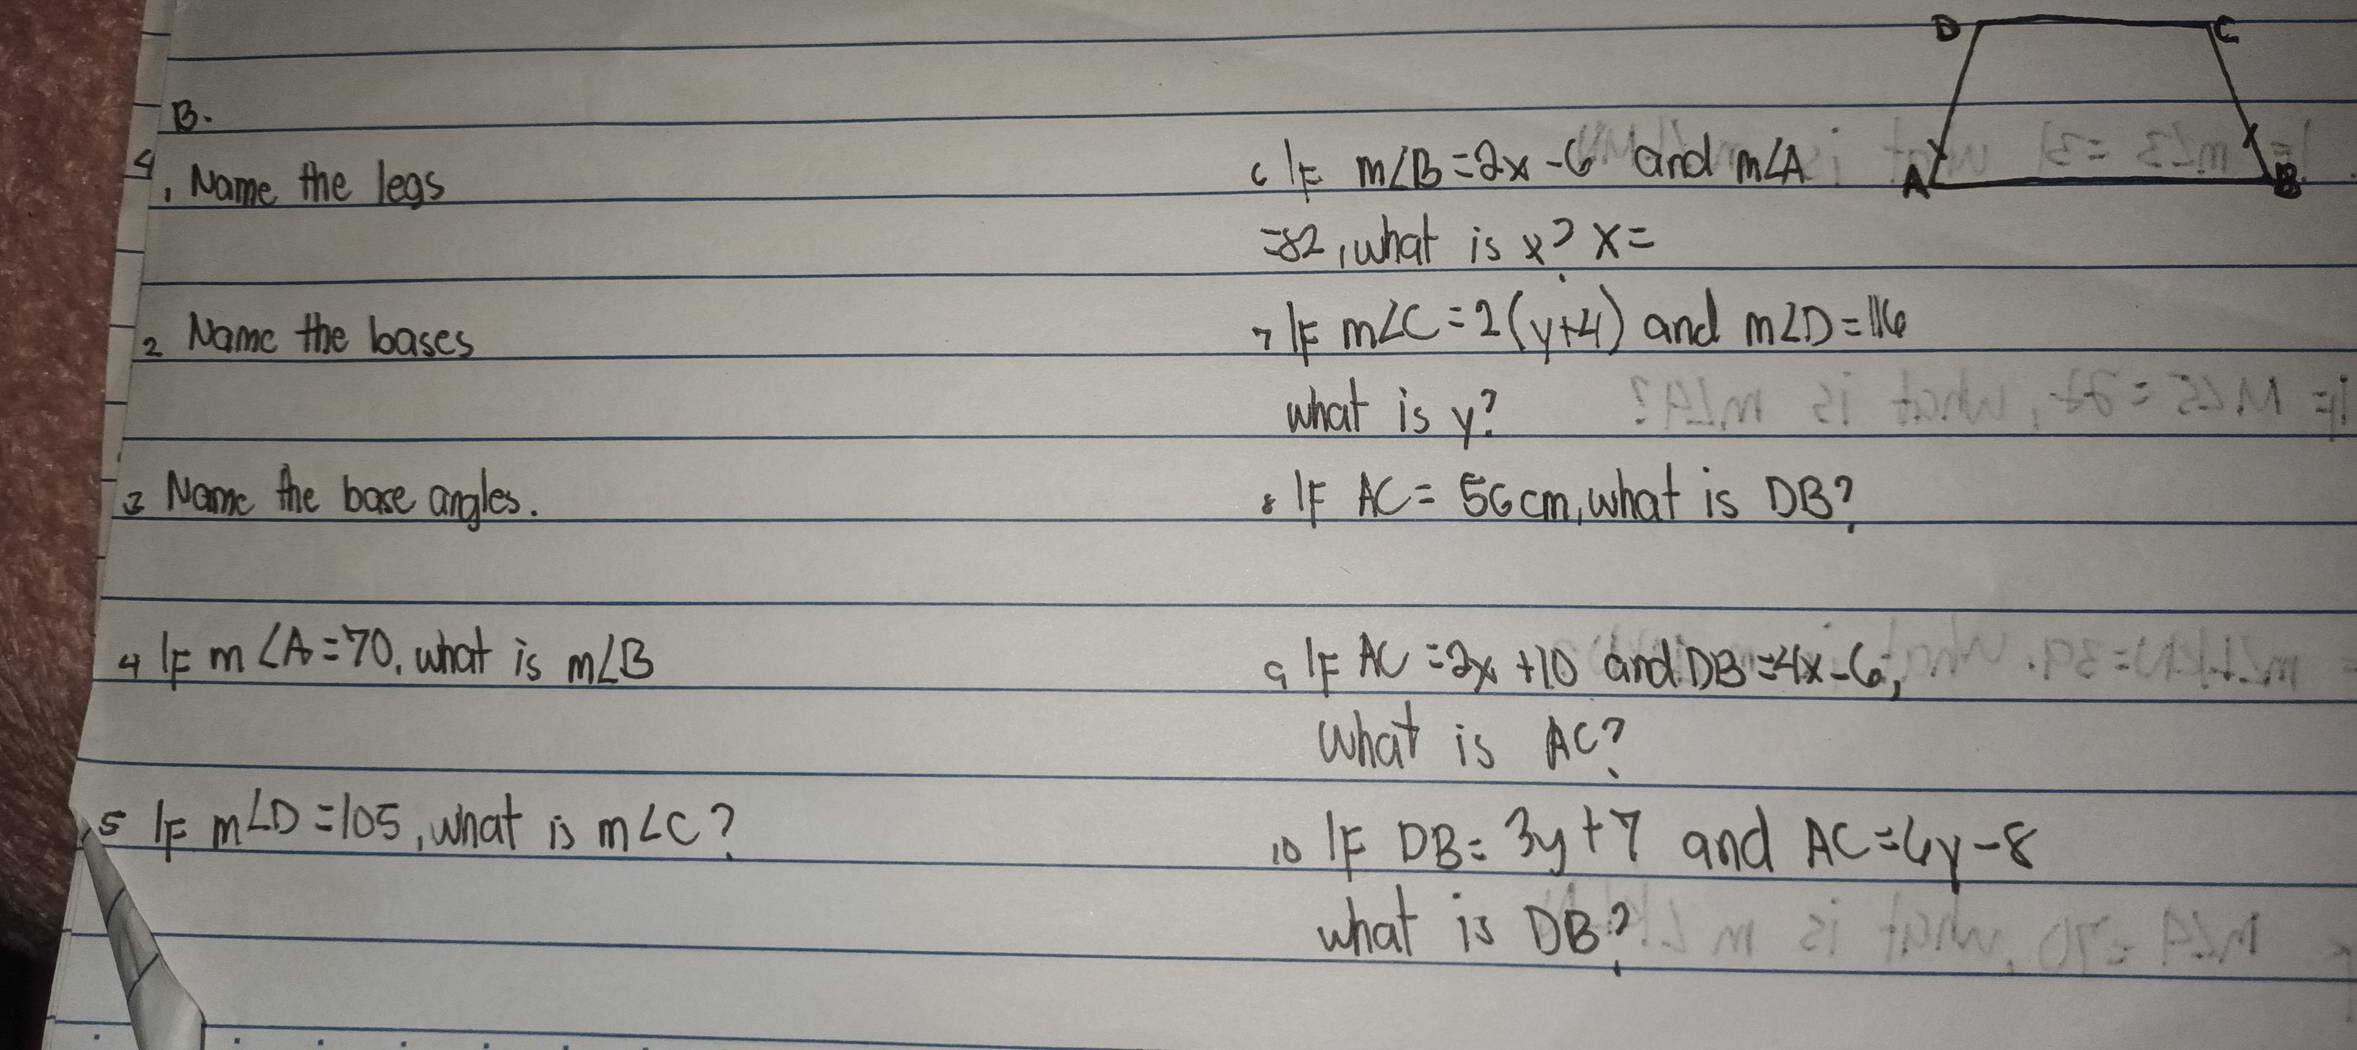 B.
1. Name the legs
2 Name the bases
3 Name the base angles.
4 IF m∠A=70, what is m∠B
5 IF m∠D=105, what is m∠C?
D C
A B
6 IF m∠B=2x-6 and m∠A
=82, what is x? x=
7 IF m∠C=2(y+4) and m∠D=116
what is y?
8 IF AC= 56cm, what is DB?
9 IF AC=2x+10 and DB=4x-6,
what is AC?
10 IF DB=3y+7 and AC=6y-8
what is DB?